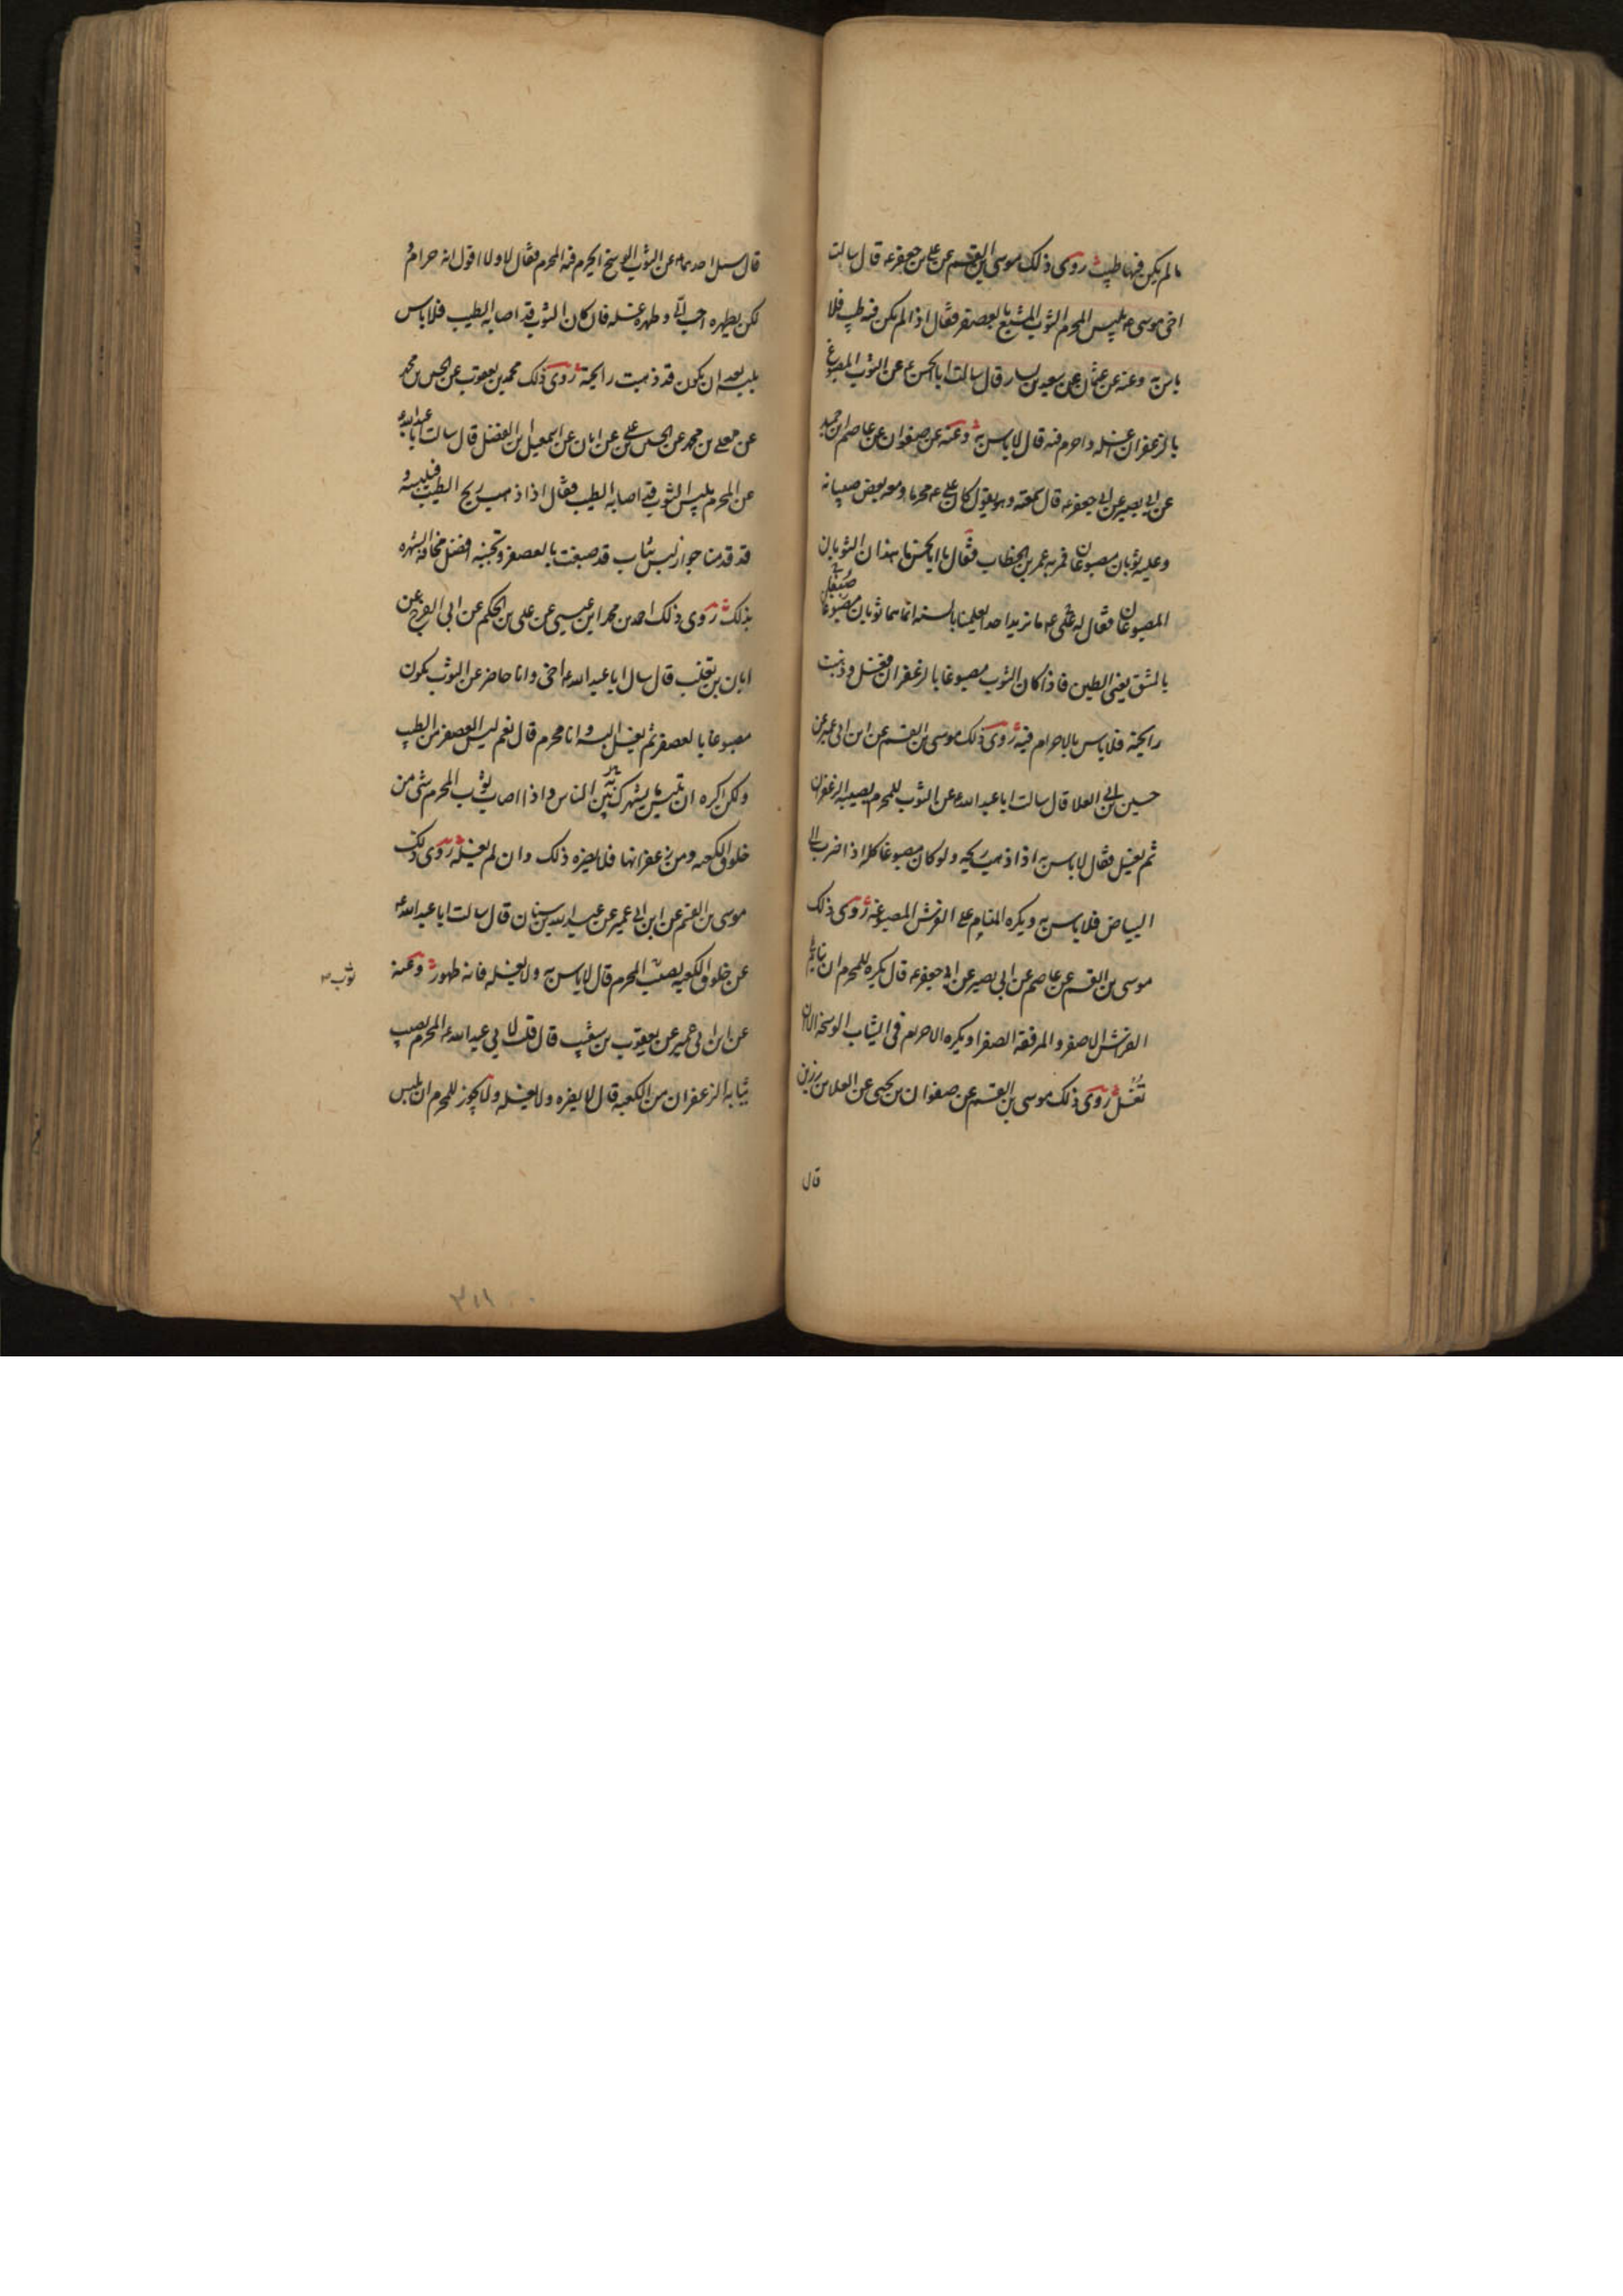 مالم يكن فيها طيب روى ذلك موسى بن القسم عن على بن جعفر ع قال سالت
اخى موسى ع يلبس المحرم الثوب المشبع بالعصفر فقال اذا لم يكن فيه طيب فلا
باس به وعنه عن عثمان عن سعيد بن يسار قال سالت ابا الحسن ع عن الثوب المصبوغ
بالزعفران اغسله واحرم فيه قال لا باس به وعنه عن صفوان عن عاصم بن حميد
عن ابى بصير عن ابى جعفر ع قال سمعته وهو يقول كان على ع محرما ومعه بعض صبيانه
وعليه ثوبان مصبوغان فمر به عمر بن الخطاب فقال يا ابا الحسن ما هذان الثوبان
المصبوغان فقال له على ع ما نريد احدا يعلمنا بالسنه انما هما ثوبان صبغا
بالمشق يعنى الطين فاذا كان الثوب مصبوغا بالزعفران فغسل وذهبت
رايحته فلا باس بالاحرام فيه روى ذلك موسى بن القسم عن ابن ابى عمير عن
حسين بن ابى العلا قال سالت ابا عبد الله ع عن الثوب للمحرم يصيبه الزعفران
ثم يغسل فقال لا باس به اذا ذهب ريحه ولو كان مصبوغا كله اذا ضرب الى
البياض فلا باس به ويكره المنام على الفرش المصبوغه روى ذلك
موسى بن القسم عن عاصم عن ابى بصير عن ابى جعفر ع قال يكره للمحرم ان ينام على
الفرش الاصفر والمرفقة الصفرا ويكره الاحرام فى الثياب الوسخة الا ان
تغسل روى ذلك موسى بن القسم عن صفوان بن يحيى عن العلا بن رزين
قال
قال سئل احدهما ع عن الثوب الوسخ ايحرم فيه المحرم فقال لا ولا اقول انه حرام و
لكن يطهره احب الى وطهره غسله فان كان الثوب قد اصابه الطيب فلا باس
بلبسه بعد ان يكون قد ذهبت رايحته روى ذلك محمد بن يعقوب عن الحسين بن محمد
عن معلى بن محمد عن الحسن بن على عن ابان عن اسمعيل بن الفضل قال سالت ابا عبد الله ع
عن المحرم يلبس الثوب قد اصابه الطيب فقال اذا ذهب ريح الطيب فليلبسه و
قد قدمنا جواز لبس ثياب قد صبغت بالعصفر وتجنبه افضل مخافة الشهره
بذلك روى ذلك احمد بن محمد ابن عيسى عن على بن الحكم عن ابى الفرج عن
ابان بن تغلب قال سال ابا عبد الله ع اخى وانا حاضر عن الثوب يكون
مصبوغا بالعصفر ثم يغسل البسه وانا محرم قال نعم ليس العصفر من الطيب
ولكن اكره ان تلبس ما يشهرك به بين الناس واذا اصاب ثوب المحرم شى من
خلوق الكعبه ومن زعفرانها فلا يضره ذلك وان لم يغسله روى ذلك
موسى بن القسم عن ابن ابى عمير عن عبد الله بن سنان قال سالت ابا عبد الله ع
عن خلوق الكعبه يصيب المحرم قال لا باس به ولا يغسله فانه طهور وعنه
ثوب
عن ابن ابى عمير عن يعقوب بن شعيب قال قلت لابى عبد الله ع المحرم يصيب
ثيابه الزعفران من الكعبه قال لا يضره ولا يغسله ولا يجوز للمحرم ان يلبس